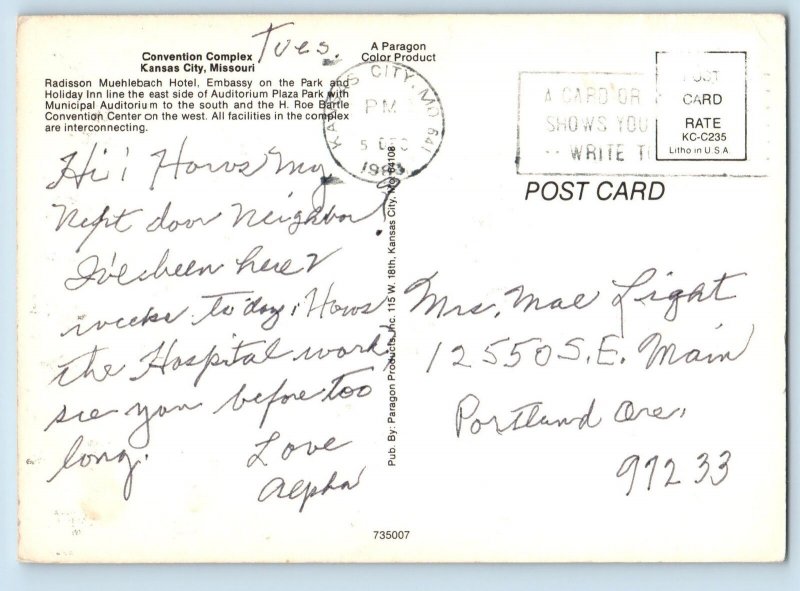 Tues.
Convention Complex
Kansas City, Missouri
Radisson Muehlebach Hotel, Embassy on the Park and
Holiday Inn line the east side of Auditorium Plaza Park with
Municipal Auditorium to the south and the H. Roe Bartle
Convention Center on the west. All facilities in the complex
are interconnecting.
A Paragon
Color Product
KANSAS CITY, MO 641
PM
5 DEC
A CARD OR
SHOWS YOU
-- WRITE
POST
CARD
RATE
KC-C235
Litho in U.S.A.
POST CARD
Hi! Hows my
Next door Neighbor
I've been here 2
weeks to day, Hows
the Hospital work
see you before too
long.
Love
Alpha
Pub. By: Paragon Products, Inc. 115 W. 18th, Kansas City, Mo. 64108
Mrs. Mae Light
12550 S.E. Main
Portland Ore.
97233
735007